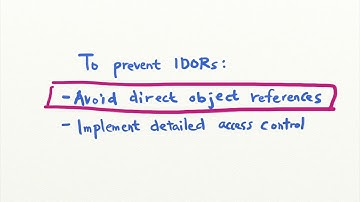 To prevent IDORs:
- Avoid direct object references
- Implement detailed access control